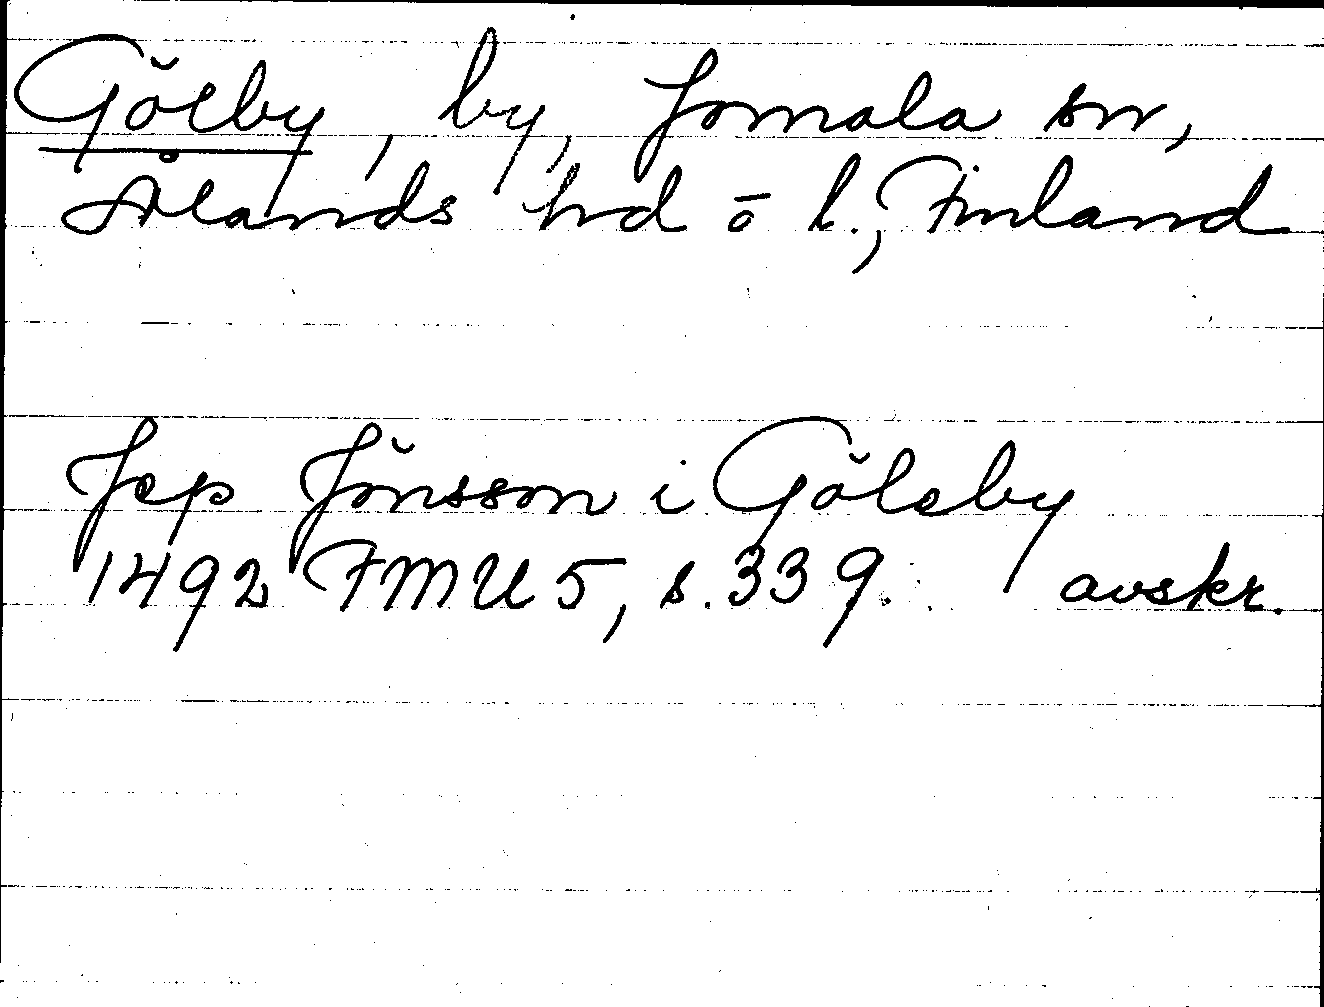 Gölby, by, Jomala sn,
Ålands hd ō l., Finland
Jep Jönsson i Göleby
1492 FMU 5, s. 339. avskr.